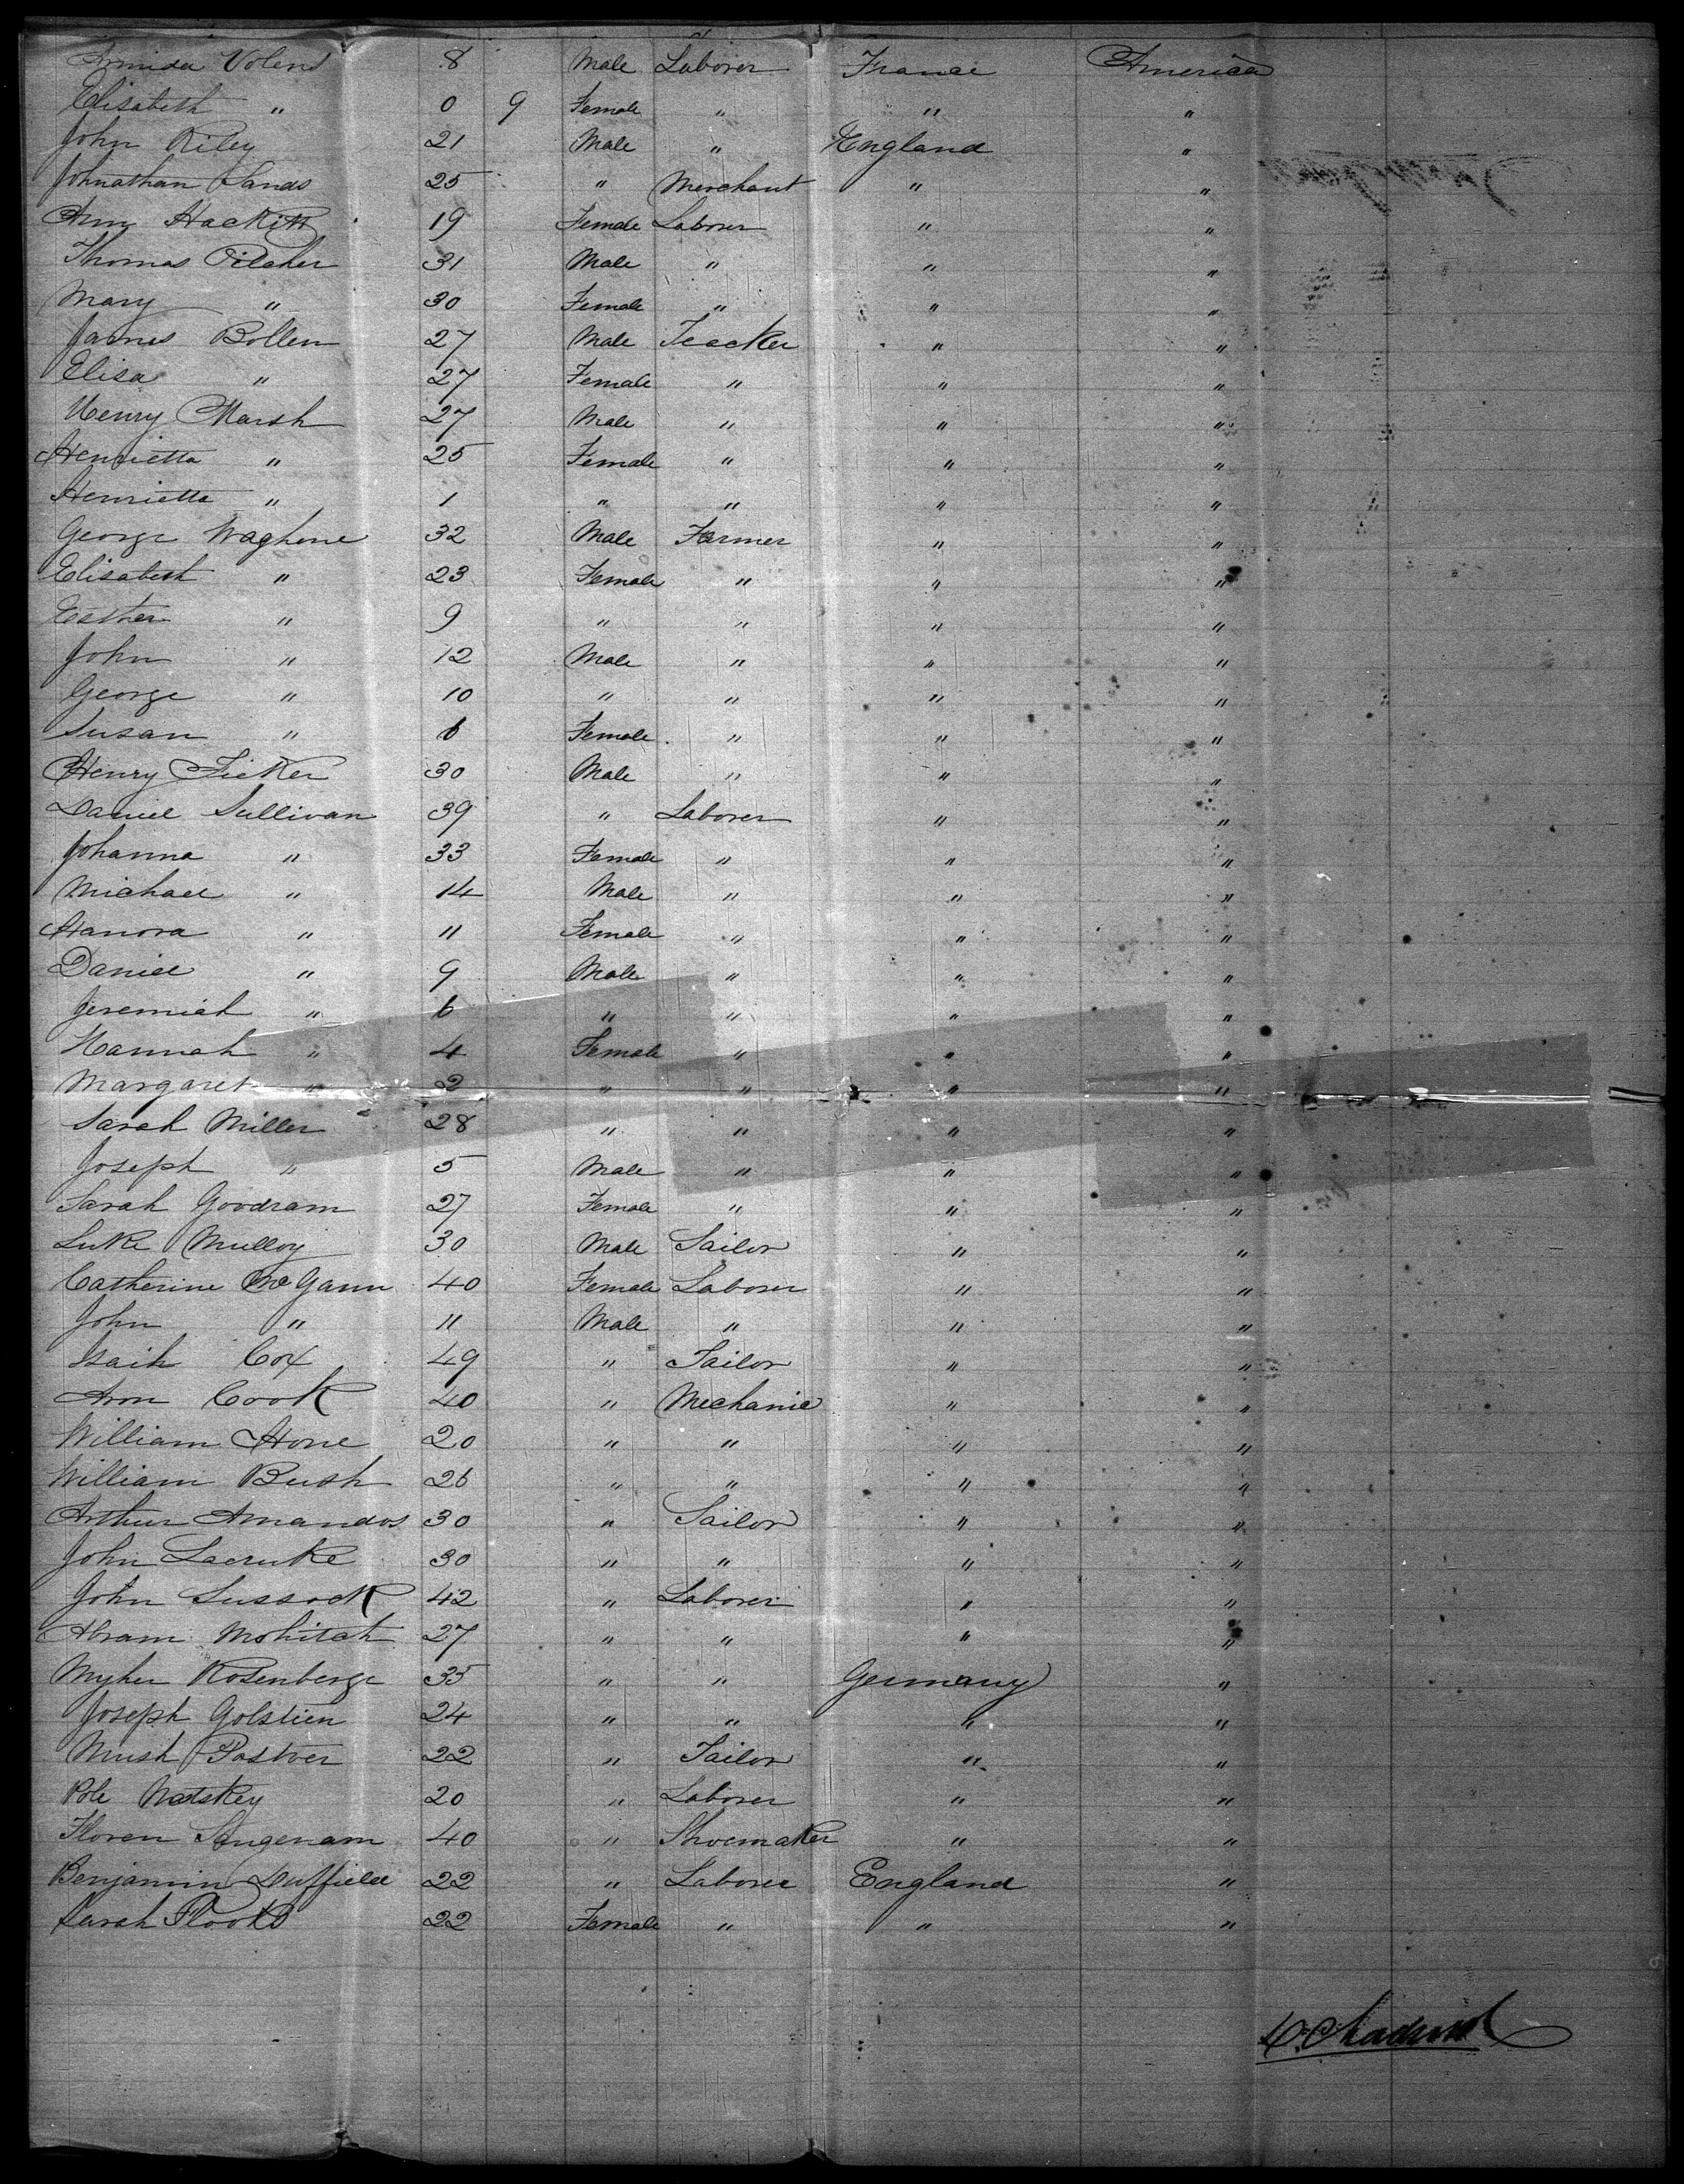 Armida Volens 8 Male Laborer France America
Elisabeth " 0 9 Female " " "
John Riley 21 Male " England "
Johnathan Sands 25 " Merchant " "
Ann Hackitt 19 Female Laborer " "
Thomas Pilcher 31 Male " " "
Mary " 30 Female " " "
James Bollen 27 Male Teacker " "
Elisa " 27 Female " " "
Henry Marsh 27 Male " " "
Henrietta " 25 Female " " "
Henrietta " 1 " " " "
George Waghone 32 Male Farmer " "
Elisabeth " 23 Female " " "
Esther " 9 " " " "
John " 12 Male " " "
George " 10 " " " "
Susan " 6 Female " " "
Henry Ficker 30 Male " " "
Daniel Sullivan 39 " Laborer " "
Johanna " 33 Female " " "
Michael " 14 Male " " "
Hanora " 11 Female " " "
Daniel " 9 Male " " "
Jeremiah " 6 " " " "
Hannah " 4 Female " " "
Margaret " 2 " " " "
Sarah Miller 28 " " " "
Joseph " 5 Male " " "
Sarah Goodram 27 Female " " "
Luke Mulloy 30 Male Sailor " "
Catherine McGann 40 Female Laborer " "
John " 11 Male " " "
Isaih Cox 49 " Tailor " "
Aron Cook 40 " Mechanic " "
William Hone 20 " " " "
William Bush 26 " " " "
Arthur Amandos 30 " Sailor " "
John Lacruke 30 " " " "
John Sussock 42 " Laborer " "
Abram Mohitah 27 " " " "
Myher Rosenberge 35 " " Germany "
Joseph Golstien 24 " " " "
Mush Postver 22 " Tailor " "
Pole Natskey 20 " Laborer " "
Floren Sangenam 40 " Shoemaker " "
Benjamin Duffield 22 " Laborer England "
Sarah Flooks 22 Female " " "